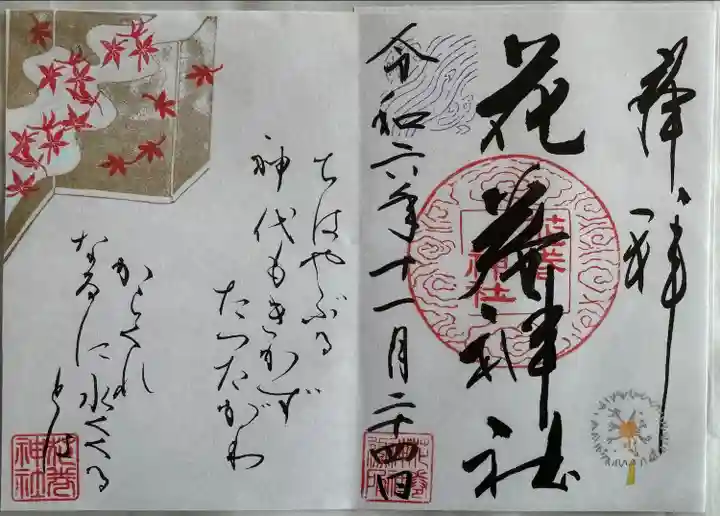 奉拝
花巻神社
花巻
神社
令和六年十一月二十四日
ちはやぶる
神代もきかず
たつたがわ
からくれ
なゐに水くくる
とは
花巻
神社